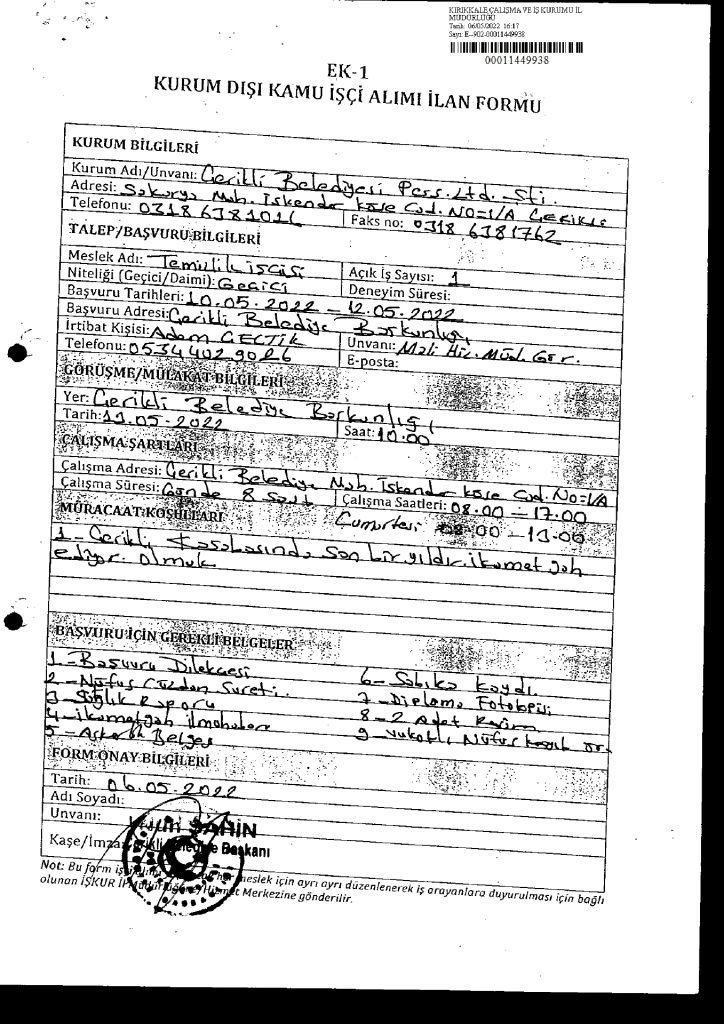 KIRIKKALE ÇALIŞMA VE İŞ KURUMU İL
MÜDÜRLÜĞÜ
Tarih: 06/05/2022 16:17
Sayı: E--902-00011449938
00011449938
EK-1
KURUM DIŞI KAMU İŞÇİ ALIMI İLAN FORMU
KURUM BİLGİLERİ
Kurum Adı/Unvanı: Çerikli Belediyesi Pers. Ltd. Şti.
Adresi: Sakarya Mah. İskender köse Cad. NO=1/A ÇERİKLİ
Telefonu: 0318 6381016 Faks no: 0318 6381762
TALEP/BAŞVURU BİLGİLERİ
Meslek Adı: Temizlik işçisi Açık İş Sayısı: 1
Niteliği (Geçici/Daimi): Geçici Deneyim Süresi:
Başvuru Tarihleri: 10.05.2022 – 12.05.2022
Başvuru Adresi: Çerikli Belediye Başkanlığı
İrtibat Kişisi: Adem Unvanı: Mali Hiz. Müd. Gör.
Telefonu: 0534 402 9026 E-posta:
GÖRÜŞME/MÜLAKAT BİLGİLERİ
Yer: Çerikli Belediye Başkanlığı
Tarih: 13.05.2022 Saat: 10:00
ÇALIŞMA ŞARTLARI
Çalışma Adresi: Çerikli Belediye Mah. İskender köse Cad. No=1/A
Çalışma Süresi: Günde 8 Saat Çalışma Saatleri: 08:00 – 17:00
MÜRACAAT KOŞULLARI Cumartesi 08:00 – 13:00
1 - Çerikli Kasabasında son bir yıldır ikametgah
ediyor olmak
BAŞVURU İÇİN GEREKLİ BELGELER
1 - Başvuru Dilekçesi 6 - Sabıka kaydı.
2 - Nüfus Cüzdan Sureti. 7 - Diploma Fotokopisi
3 - Sağlık Raporu 8 - 2 Adet Resim
4 - ikametgah ilmühaberi 9 - Vukuatlı Nüfus kayıt ör.
5 - Askerlik Belgesi
FORM ONAY BİLGİLERİ
Tarih: 06.05.2022
Adı Soyadı:
Unvanı:
ŞAHİN
Kaşe/İmza: Belediye Başkanı
Not: Bu form meslek için ayrı ayrı düzenlenerek iş arayanlara duyurulması için bağlı
olunan İŞKUR İl Müdürlüğüne/Hizmet Merkezine gönderilir.